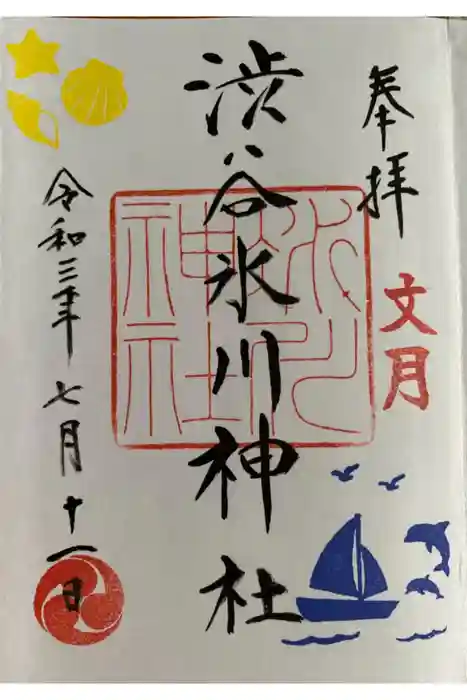 奉拝
文月
渋谷氷川神社
氷川神社
令和三年七月十一日